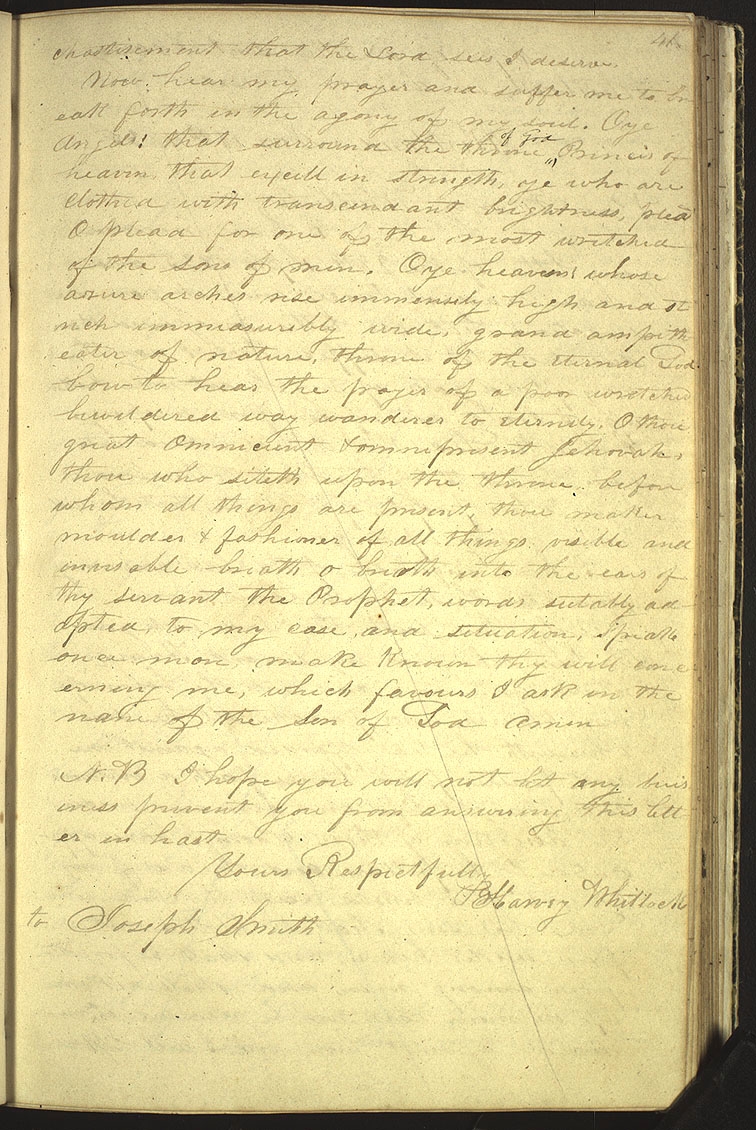 41
chastisement that the Lord sees I deserve.
Now hear my prayer and suffer me to br
eak forth in the agony of my soul. O ye
Angels! that surround the throne of God, Princes of
heaven that excell in strength, ye who are
clothed with transcendant brightness, plead
O plead for one of the most wretched
of the sons of men. O ye heavens! whose
azure arches rise immensely high and st
rech immeasurably wide, grand ampith
eater of nature, throne of the eternal God
bow to hear the prayer of a poor wretched
bewildered way wanderer to eternity. O thou
great Omnicient & omnipresent Jehovah,
thou who siteth upon the throne, before
whom all things are present, thou maker
moulder & fashioner of all things visible and
invisable breath o breath into the ears of
thy servant the Prophet, words sutably ad
apted, to my case, and situation, speak
once more, make known thy will conc
erning me, which favours I ask in the
name of the Son of God amen
N.B I hope you will not let any buis
iness prevent you from answering this lett
er in hast
Yours Respectfully
Harvey Whitlock
to Joseph Smith